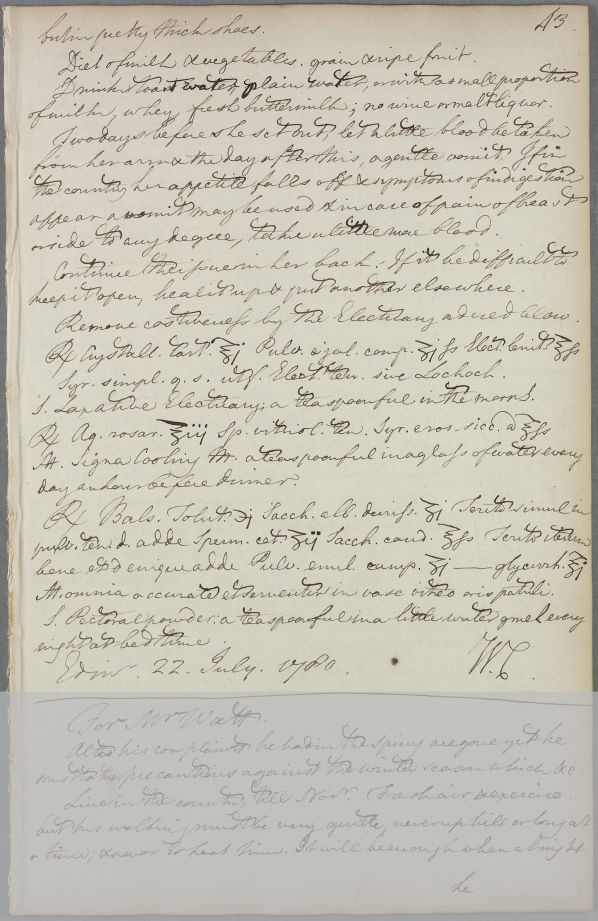 43.
but in pretty thick shoes.
Diet of milk & vegetables. grain & ripe fruit.
Drink toast water, plain water, or with a small proportion
of milk, whey, fresh buttermilk; no wine or malt liquor.
Two days before she set out, let a little blood be taken
from her arm & the day after this, a gentle vomit. If in
the country her appetite falls off & symptoms of indigestion
appear a vomit may be used & in case of pain of breast
or side to any degree, take a little more blood.
Continue the issue in her back. If it be difficult to
keep it open, heal it up & put another elsewhere.
Remove costiveness by the Electuary advised below.
℞ Crystall. Tart. ʒj Pulv. e jal. comp. ʒj ss Elect. lenit. ℥ss
Syr. simpl. q. s. ut f. Elect. ten. sive Lochoch.
S. Laxative Electuary; a teaspoonful in the morns.
℞ Aq. rosar. ʒiij Sp. vitriol. ten. Syr. e ros. sicc. a ℥ss
M. Signa Cooling M. a teaspoonful in a glass of water every
day an hour before dinner.
℞ Bals. Tolut. ℈j Sacch. alb. duriss. ʒj Terito simul in
pulv. ten. d. adde Sperm. cet. ʒij Sacch. cand. ℥ss Terito iterum
bene et denique adde Pulv. e
comp. ʒj — glycirrh. ʒj
M. omnia accurate et serventur in vase vitreo oris patuli.
S. Pectoral powder: a teaspoonful in a little water gruel every
night at bed time.
Edinr. 22. July. 1780. W.C.
For Mr Watt.
Altho his complaints he had in the spring are gone yet he
must take precautions against the winter season which &c.
Live in the country till Novr. Fresh air & exercise.
but his walking must be very gentle, never up hill or long at
a time; & never to heat him. It will be enough when at night
he